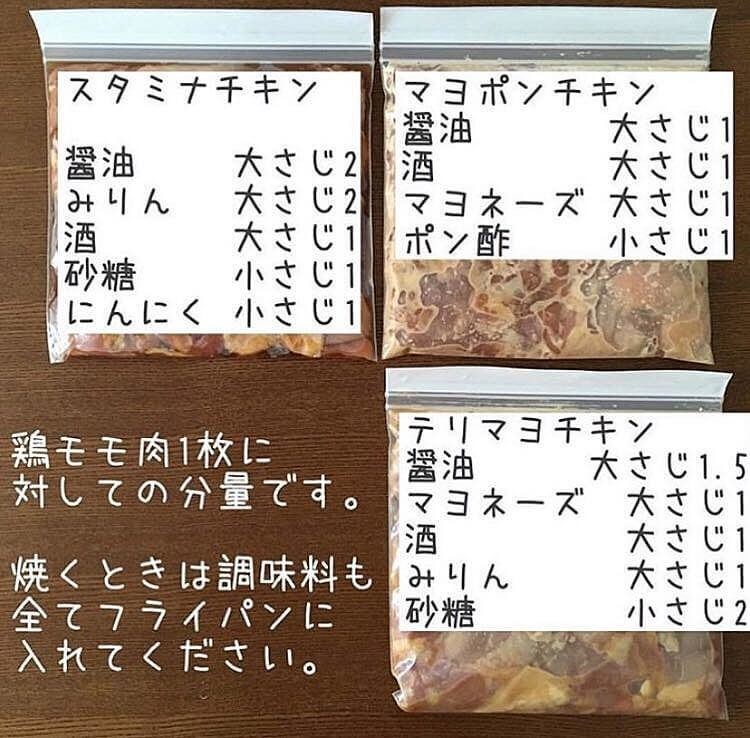 スタミナチキン
醤油 大さじ2
みりん 大さじ2
酒 大さじ1
砂糖 小さじ1
にんにく 小さじ1
マヨポンチキン
醤油 大さじ1
酒 大さじ1
マヨネーズ 大さじ1
ポン酢 小さじ1
鶏モモ肉1枚に
対しての分量です。
焼くときは調味料も
全てフライパンに
入れてください。
テリマヨチキン
醤油 大さじ1.5
マヨネーズ 大さじ1
酒 大さじ1
みりん 大さじ1
砂糖 小さじ2